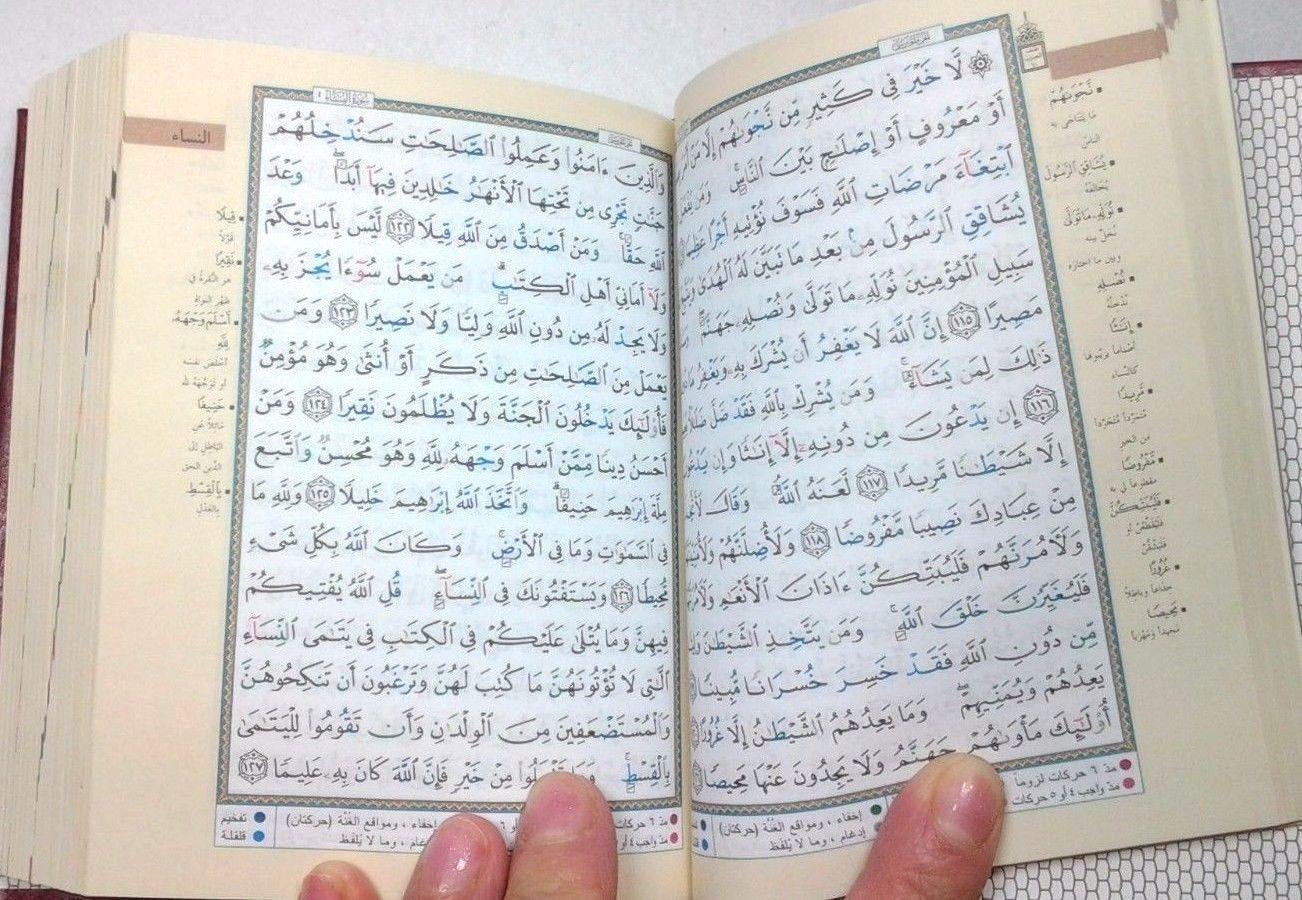 لَّا خَيْرَ فِى كَثِيرٍ مِّن نَّجْوَىٰهُمْ إِلَّا مَنْ أَمَرَ
أَوْ مَعْرُوفٍ أَوْ إِصْلَٰحٍۭ بَيْنَ ٱلنَّاسِ ۚ وَمَن يَفْعَلْ
ٱبْتِغَآءَ مَرْضَاتِ ٱللَّهِ فَسَوْفَ نُؤْتِيهِ أَجْرًا عَظِيمًا
يُشَاقِقِ ٱلرَّسُولَ مِنۢ بَعْدِ مَا تَبَيَّنَ لَهُ ٱلْهُدَىٰ
سَبِيلِ ٱلْمُؤْمِنِينَ نُوَلِّهِۦ مَا تَوَلَّىٰ وَنُصْلِهِۦ جَهَنَّمَ ۖ
مَصِيرًا ١١٥ إِنَّ ٱللَّهَ لَا يَغْفِرُ أَن يُشْرَكَ بِهِۦ وَيَغْفِرُ مَا
ذَٰلِكَ لِمَن يَشَآءُ ۚ وَمَن يُشْرِكْ بِٱللَّهِ فَقَدْ ضَلَّ
١١٦ إِن يَدْعُونَ مِن دُونِهِۦٓ إِلَّآ إِنَٰثًا وَإِن
إِلَّا شَيْطَٰنًا مَّرِيدًا ١١٧ لَّعَنَهُ ٱللَّهُ ۘ وَقَالَ
مِنْ عِبَادِكَ نَصِيبًا مَّفْرُوضًا ١١٨ وَلَأُضِلَّنَّهُمْ
وَلَءَامُرَنَّهُمْ فَلَيُبَتِّكُنَّ ءَاذَانَ ٱلْأَنْعَٰمِ
فَلَيُغَيِّرُنَّ خَلْقَ ٱللَّهِ ۚ وَمَن يَتَّخِذِ ٱلشَّيْطَٰنَ
مِّن دُونِ ٱللَّهِ فَقَدْ خَسِرَ خُسْرَانًا مُّبِينًا
يَعِدُهُمْ وَيُمَنِّيهِمْ ۖ وَمَا يَعِدُهُمُ ٱلشَّيْطَٰنُ إِلَّا غُرُورًا
أُو۟لَٰٓئِكَ مَأْوَىٰهُمْ جَهَنَّمُ وَلَا يَجِدُونَ عَنْهَا مَحِيصًا
نَّجْوَىٰهُمْ
مَا يَتَنَاجَى بِهِ
النَّاسُ
يُشَاقِقِ ٱلرَّسُولَ
يُخَالِفْهُ
نُوَلِّهِۦ مَا تَوَلَّىٰ
وبين ما اختاره
نُصْلِهِۦ
نُدْخِلْهُ
إِنَٰثًا
كالنساء
مَّرِيدًا
من الخير
مَّفْرُوضًا
مقطوعاً لي به
فَلَيُبَتِّكُنَّ
غُرُورًا
خداعاً وباطلاً
مَحِيصًا
مَحِيداً ومَهْرَباً
مدّ ٦ حركات لزوماً
مدّ واجب ٤ أو ٥ حركات
إخفاء ، ومواقع الغُنَّة (حركتان)
إدغام ، وما لا يُلفَظ
سورة النساء ٤
النساء
وَٱلَّذِينَ ءَامَنُوا۟ وَعَمِلُوا۟ ٱلصَّٰلِحَٰتِ سَنُدْخِلُهُمْ
جَنَّٰتٍ تَجْرِى مِن تَحْتِهَا ٱلْأَنْهَٰرُ خَٰلِدِينَ فِيهَآ أَبَدًا ۖ وَعْدَ
ٱللَّهِ حَقًّا ۚ وَمَنْ أَصْدَقُ مِنَ ٱللَّهِ قِيلًا ١٢٢ لَّيْسَ بِأَمَانِيِّكُمْ
وَلَآ أَمَانِىِّ أَهْلِ ٱلْكِتَٰبِ ۗ مَن يَعْمَلْ سُوٓءًا يُجْزَ بِهِۦ
وَلَا يَجِدْ لَهُۥ مِن دُونِ ٱللَّهِ وَلِيًّا وَلَا نَصِيرًا ١٢٣ وَمَن
يَعْمَلْ مِنَ ٱلصَّٰلِحَٰتِ مِن ذَكَرٍ أَوْ أُنثَىٰ وَهُوَ مُؤْمِنٌ
فَأُو۟لَٰٓئِكَ يَدْخُلُونَ ٱلْجَنَّةَ وَلَا يُظْلَمُونَ نَقِيرًا ١٢٤ وَمَنْ
أَحْسَنُ دِينًا مِّمَّنْ أَسْلَمَ وَجْهَهُۥ لِلَّهِ وَهُوَ مُحْسِنٌ وَٱتَّبَعَ
مِلَّةَ إِبْرَٰهِيمَ حَنِيفًا ۗ وَٱتَّخَذَ ٱللَّهُ إِبْرَٰهِيمَ خَلِيلًا ١٢٥ وَلِلَّهِ مَا
فِى ٱلسَّمَٰوَٰتِ وَمَا فِى ٱلْأَرْضِ ۚ وَكَانَ ٱللَّهُ بِكُلِّ شَىْءٍ
مُّحِيطًا ١٢٦ وَيَسْتَفْتُونَكَ فِى ٱلنِّسَآءِ ۖ قُلِ ٱللَّهُ يُفْتِيكُمْ
فِيهِنَّ وَمَا يُتْلَىٰ عَلَيْكُمْ فِى ٱلْكِتَٰبِ فِى يَتَٰمَى ٱلنِّسَآءِ
ٱلَّٰتِى لَا تُؤْتُونَهُنَّ مَا كُتِبَ لَهُنَّ وَتَرْغَبُونَ أَن تَنكِحُوهُنَّ
وَٱلْمُسْتَضْعَفِينَ مِنَ ٱلْوِلْدَٰنِ وَأَن تَقُومُوا۟ لِلْيَتَٰمَىٰ
بِٱلْقِسْطِ ۚ وَمَا تَفْعَلُوا۟ مِنْ خَيْرٍ فَإِنَّ ٱللَّهَ كَانَ بِهِۦ عَلِيمًا ١٢٧
قِيلًا
قَوْلاً
نَقِيرًا
هو النُّقرةُ في
ظَهْرِ النواة
أَسْلَمَ وَجْهَهُۥ
لِلَّهِ
أخلص نفسه
أو تَوَجُّهَهُ لله
حَنِيفًا
مائلاً عن
الباطِلِ إلى
الدّين الحق
بِٱلْقِسْطِ
بالعَدْلِ
مدّ ٦ حركات
مدّ واجب ٤ أو
إخفاء ، ومواقع الغُنَّة (حركتان)
إدغام ، وما لا يُلفَظ
تفخيم
قلقلة